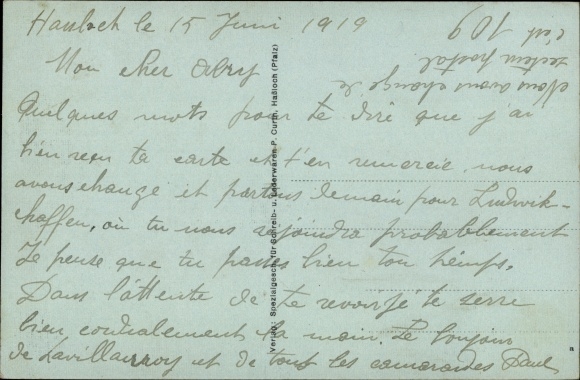 Hassloch le 15 Juin 1919
Mon cher Abry
Quelques mots pour te dire que j'ai
bien reçu ta carte et t'en remercie. nous
avons changé et partons demain pour Ludwik-
haffen, où tu nous rejoindra probablement
Je pense que tu passes bien ton temps.
Dans l'attente de te revoir je te serre
bien cordialement la main. Le bonjour
de et de tous les camarades Paul
Nous avons changé de
secteur postal
c'est 109
Verlag: Spezialgesch. für Schreib- u. Lederwaren P. Curth, Haßloch (Pfalz)